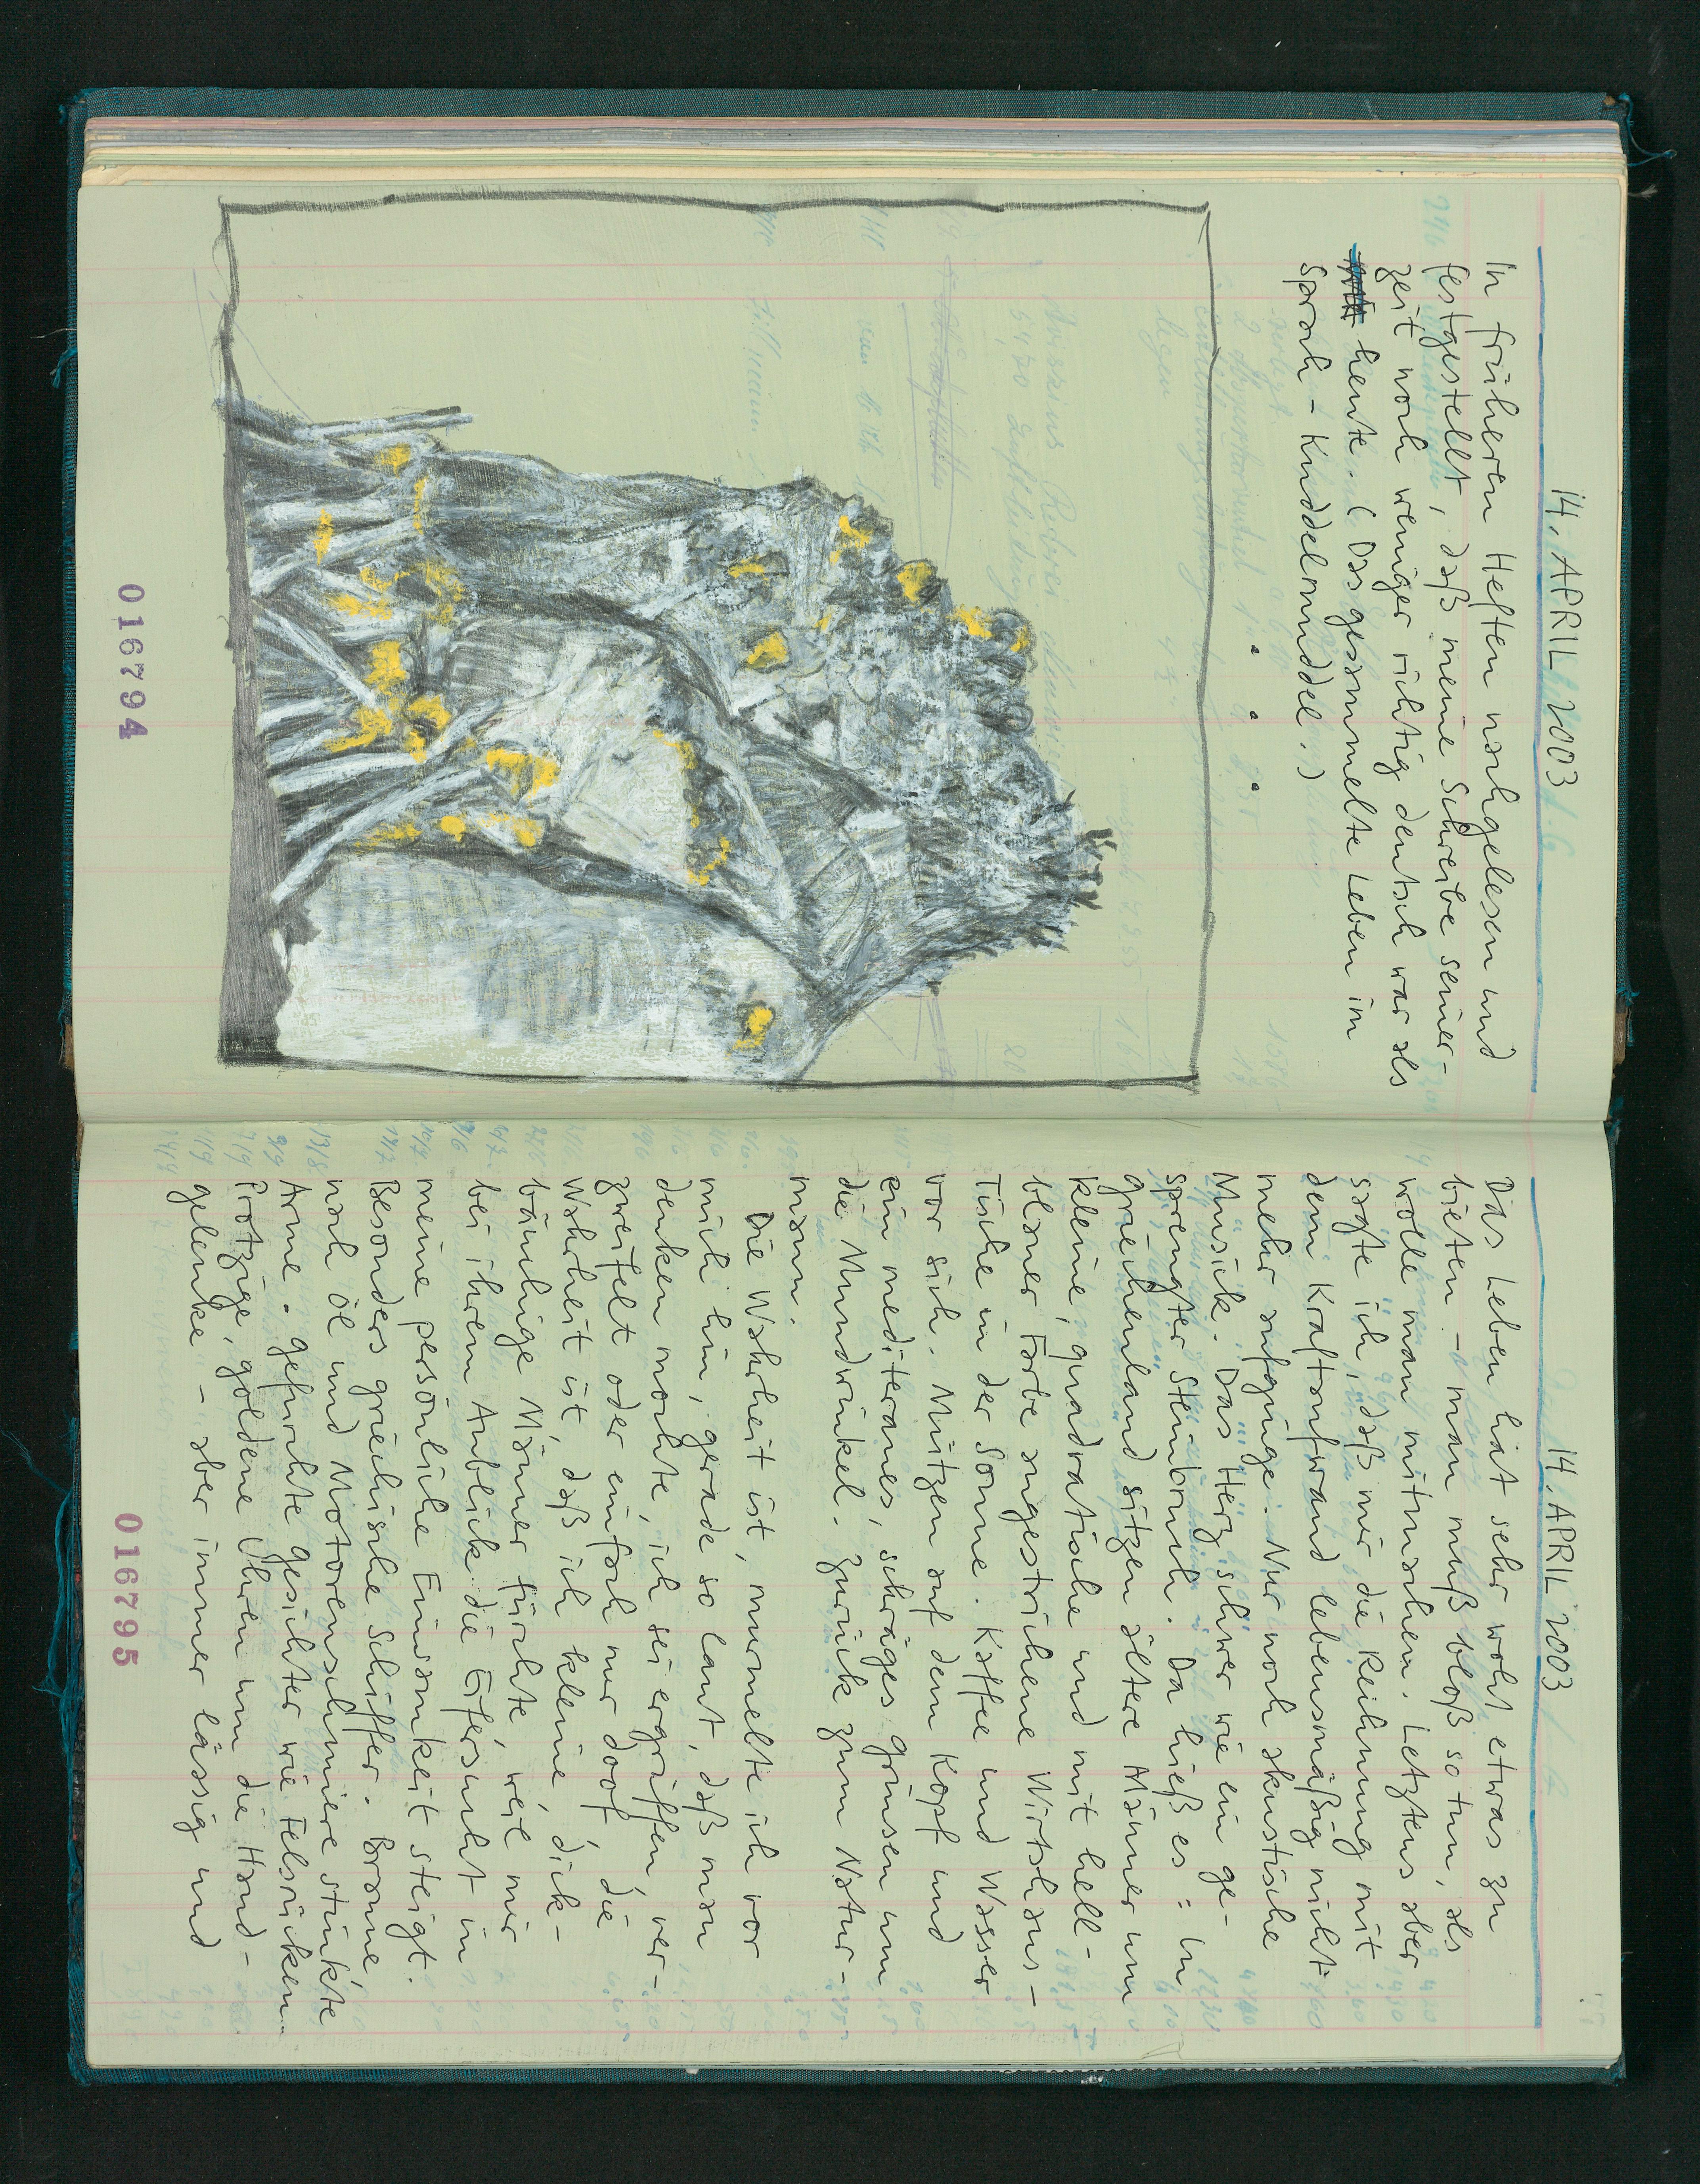 14. APRIL 2003
In früheren Heften nachgelesen und
festgestellt, daß meine Schreibe seiner-
zeit noch weniger richtig deutsch war als
heute. (Das gesammelte Leben im
Sprach-Kuddelmuddel.)
016794
14. APRIL 2003
Das Leben hat sehr wohl etwas zu
bieten - man muß bloß so tun, als
wolle man mitmachen. Letztens aber
sagte ich, daß mir die Reihnung mit
dem Kraftaufwand lebensmäßig nicht
mehr aufginge. Nur noch akustische
Musick. Das Herz schwer wie ein ge-
sprengter Steinbruch. Da hieß es: In
Griechenland sitzen ältere Männer um
kleine, quadratische und mit hell-
blauer Farbe angestrichene Wirtshaus-
Tische in der Sonne. Kaffee und Wasser
vor sich. Mützen auf dem Kopf und
ein mediteranes, schräges Grinsen um
die Mundwinkel. Zurück zum Natur-
mann.
Die Wahrheit ist, murmelte ich vor
mich hin, gerade so laut, daß man
denken mochte, ich sei ergriffen, ver-
zweifelt oder einfach nur doof, die
Wahrheit ist, daß ich kleine, dick-
bäuchige Männer fürchte, weil mir
bei ihrem Anblick die Eifersucht in
meine persönliche Einsamkeit steigt.
Besonders griechische Schiffer. Braune
nach Öl und Motorenschmiere stinkte
Arme. Gefurchte Gesichter wie Felsrücken.
Protzige, goldene Uhren um die Hand-
gelenke - aber immer lässig und
016795